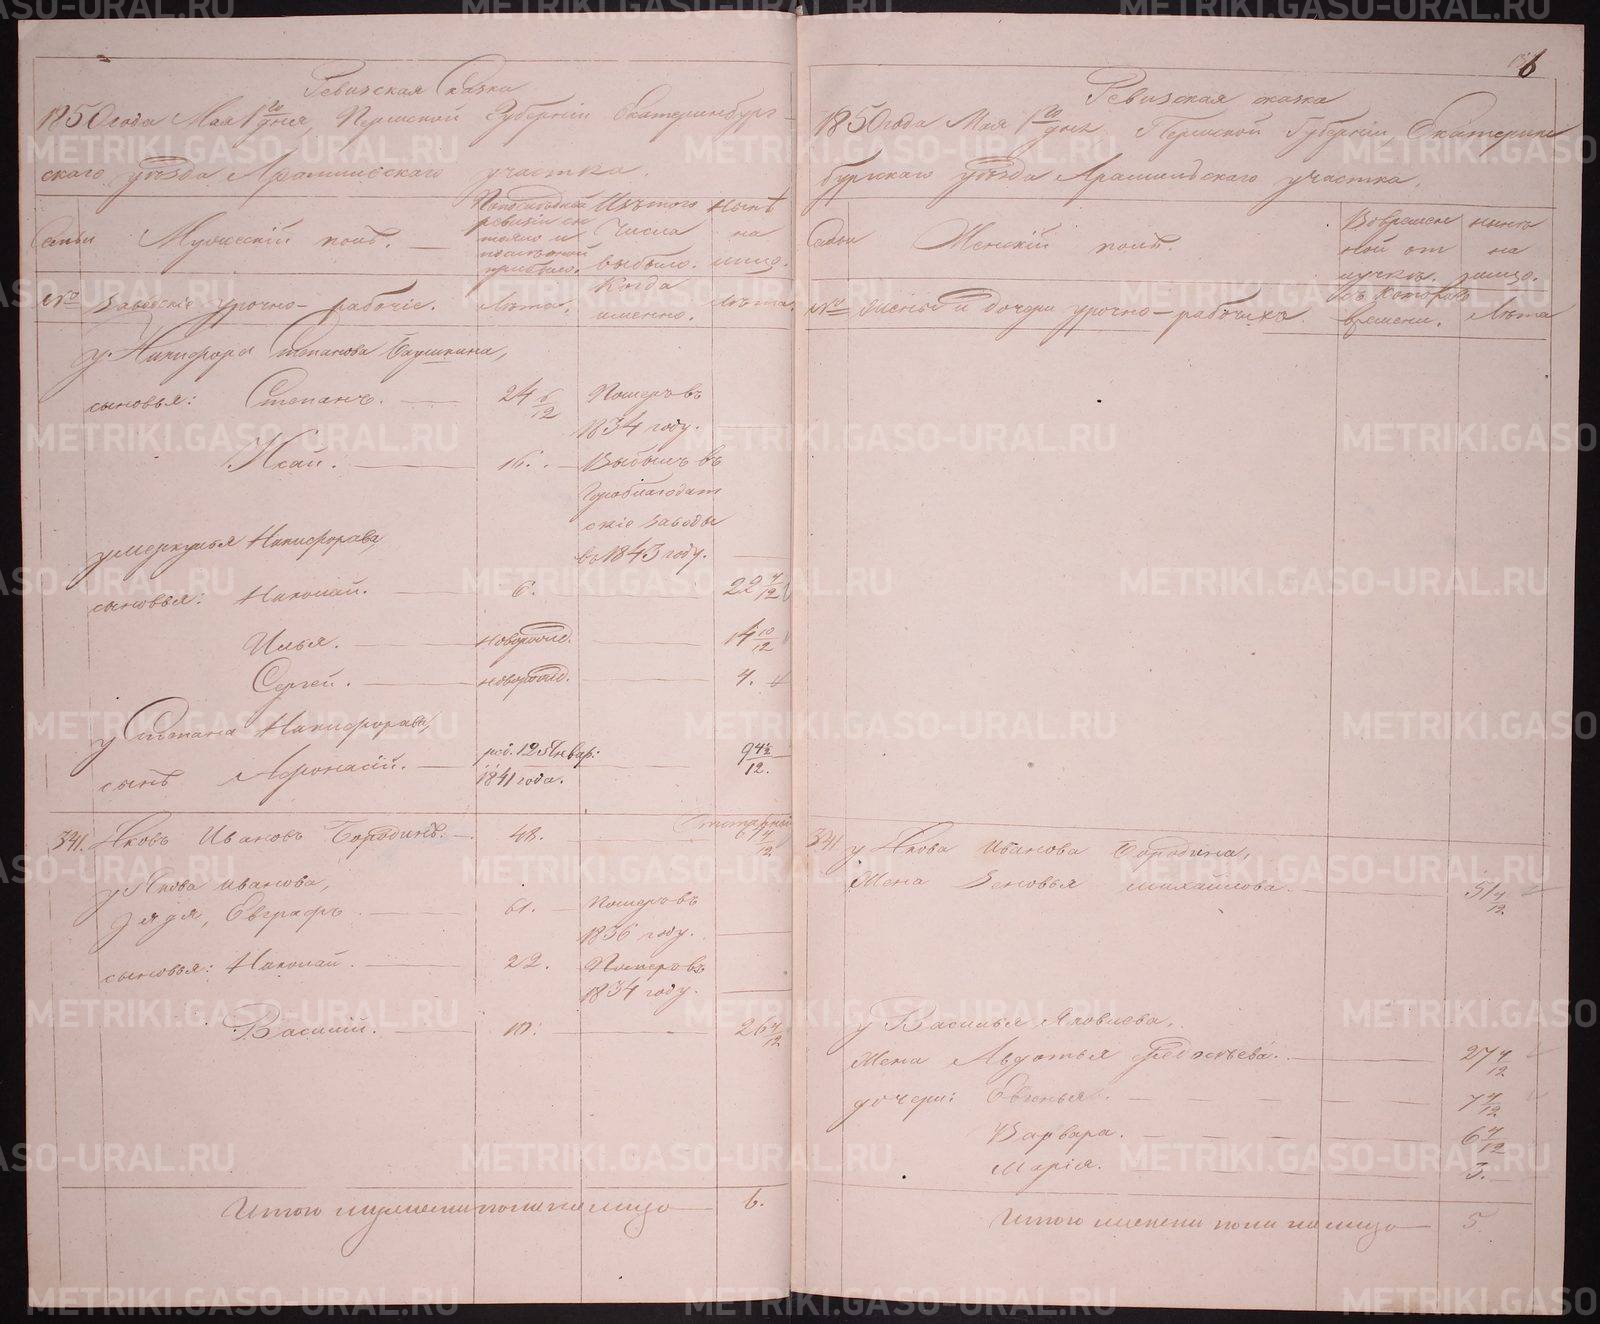 6
Ревизская Сказка
1850 года Мая 1го дня, Пермской Губерніи Екатеринбург-
скаго уѣзда Арамильскаго участка.
Семьи
Мужескій полъ.
По последней ревизіи состояло и после оной прибыло.
Изъ того Числа выбыло.
Нынѣ на лицо.
№
Заводскіе урочно-рабочіе.
Лѣта.
Когда именно.
Лѣта.
у Никифора Степанова
сыновья: Степанъ. 24 6/12 Померъ въ
1834 году.
Исай. 16. Выбылъ въ
Гороблагодат
скіе заводы
въ 1843 году.
у Меркулья Никифорова,
сыновья: Николай. 6. 22 4/12
Илья. новорожд. 14 10/12
Сергей. новорожд. 4.
у Степана Никифорова,
сынъ Афонасій. род. 12 Январ:
1841 года. 9 4/12
341. Яковъ Ивановъ Бородинъ. 48. 64 4/12
у Якова Иванова,
дядя, Евграфъ 61. Померъ въ
1836 году.
сыновья: Николай. 22. Померъ въ
1834 году.
Василій. 10. 26 4/12
Итого мужеска пола на лицо 6.
Ревизская сказка
1850 года Мая 1го дня Пермской Губерніи Екатерин
бургскаго уѣзда Арамильскаго участка.
Семьи
Женскій полъ.
Во временной отлучкѣ.
Нынѣ на лицо.
№
Жены и дочери урочно-рабочихъ
Съ котораго времени.
Лѣта
341 у Якова Иванова Бородина,
Жена Зеновья Михайлова. 51 4/12
у Василья Яковлева,
Жена Авдотья 27 4/12
дочери: Евгенья. 7 4/12
Варвара. 6 4/12
Марія. 3.
Итого женска пола на лицо 5.
METRIKI.GASO-URAL.RU